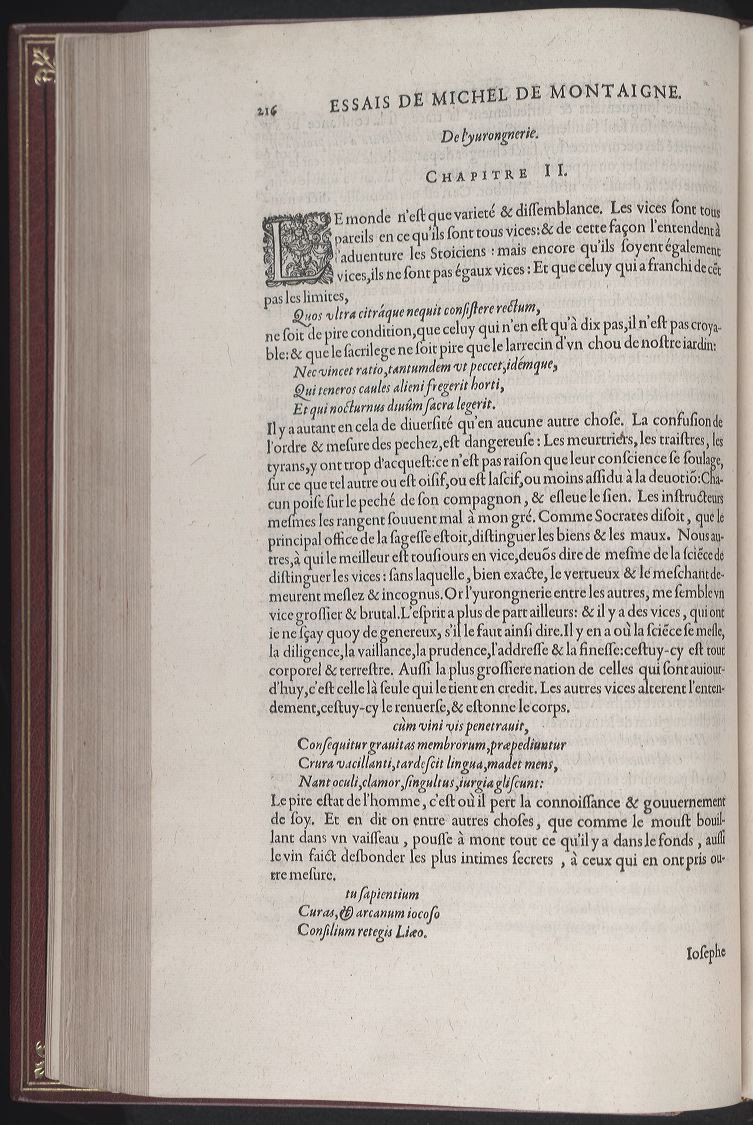 216 ESSAIS DE MICHEL DE MONTAIGNE.
De l'yurongnerie.
CHAPITRE II.
LE monde n'eſt que varieté & diſſemblance. Les vices ſont tous
pareils en ce qu'ils ſont tous vices: & de cette façon l'entendent à
l'aduenture les Stoiciens : mais encore qu'ils ſoyent également
vices, ils ne ſont pas égaux vices : Et que celuy qui a franchi de cẽt
pas les limites,
Quos vltra citráque nequit conſiſtere rectum,
ne ſoit de pire condition, que celuy qui n'en eſt qu'à dix pas, il n'eſt pas croya-
ble: & que le ſacrilege ne ſoit pire que le larrecin d'vn chou de noſtre iardin:
Nec vincet ratio, tantumdem vt peccet, idémque,
Qui teneros caules alieni fregerit horti,
Et qui nocturnus diuûm ſacra legerit.
Il y a autant en cela de diuerſité qu'en aucune autre choſe. La confuſion de
l'ordre & meſure des pechez, eſt dangereuſe : Les meurtriers, les traiſtres, les
tyrans, y ont trop d'acqueſt: ce n'eſt pas raiſon que leur conſcience ſe ſoulage,
ſur ce que tel autre ou eſt oiſif, ou eſt laſcif, ou moins aſſidu à la deuotiõ: Cha-
cun poiſe ſur le peché de ſon compagnon, & eſleue le ſien. Les inſtructeurs
meſmes les rangent ſouuent mal à mon gré. Comme Socrates diſoit, que le
principal office de la ſageſſe eſtoit, diſtinguer les biens & les maux. Nous au-
tres, à qui le meilleur eſt touſiours en vice, deuõs dire de meſme de la ſciẽce de
diſtinguer les vices : ſans laquelle, bien exacte, le vertueux & le meſchant de-
meurent meſlez & incognus. Or l'yurongnerie entre les autres, me ſemble vn
vice groſſier & brutal. L'eſprit a plus de part ailleurs: & il y a des vices, qui ont
ie ne ſçay quoy de genereux, s'il le faut ainſi dire. Il y en a où la ſciẽce ſe meſle,
la diligence, la vaillance, la prudence, l'addreſſe & la fineſſe: ceſtuy-cy eſt tout
corporel & terreſtre. Auſſi la plus groſſiere nation de celles qui ſont auiour-
d'huy, c'eſt celle là ſeule qui le tient en credit. Les autres vices alterent l'enten-
dement, ceſtuy-cy le renuerſe, & eſtonne le corps.
cùm vini vis penetrauit,
Conſequitur grauitas membrorum, præpediuntur
Crura vacillanti, tardeſcit lingua, madet mens,
Nant oculi, clamor, ſingultus, iurgia gliſcunt:
Le pire eſtat de l'homme, c'eſt où il pert la connoiſſance & gouuernement
de ſoy. Et en dit on entre autres choſes, que comme le mouſt bouil-
lant dans vn vaiſſeau, pouſſe à mont tout ce qu'il y a dans le fonds, auſſi
le vin faict desbonder les plus intimes ſecrets, à ceux qui en ont pris ou-
tre meſure.
tu ſapientium
Curas, & arcanum iocoſo
Conſilium retegis Liæo.
Ioſephe